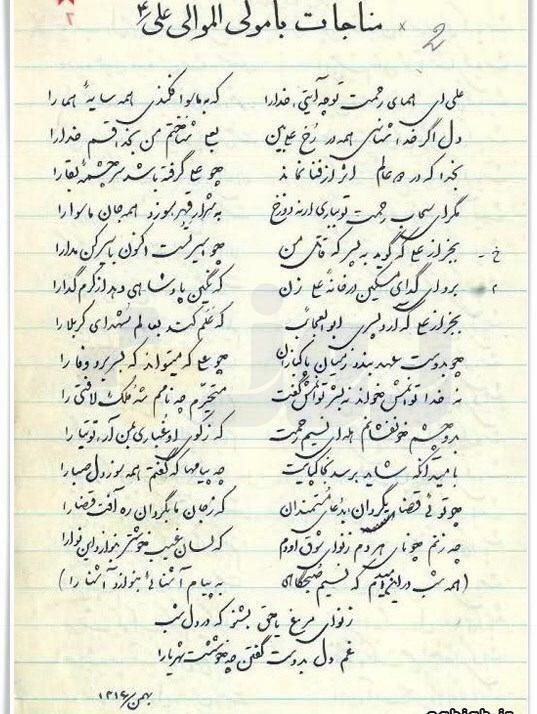 ۲
مناجات بامولی الموالی علی ع
علی ای همای رحمت تو چه آیتی خدارا که به ماسوا فکندی همه سایهٔ هما را
دل اگر خداشناسی همه در رخ علی بین بعلی شناختم من بخدا قسم خدارا
بخدا که در دو عالم اثر از فنا نماند چو علی گرفته باشد سرچشمهٔ بقارا
مگر ای سحاب رحمت تو بباری ارنه دوزخ به شرار قهر سوزد همه جان ماسوارا
بجز از علی که گوید به پسر که قاتل من چو اسیر تست اکنون باسیر کن مدارا
برو ای گدای مسکین در خانهٔ علی زن که نگین پادشاهی دهد از کرم گدارا
بجز از علی که آرد پسری ابوالعجائب که علم کند بعالم شهدای کربلا را
چو بدوست عهد بندد ز میان پاکبازان چو علی که میتواند که بسر برد وفا را
نه خدا توانمش خواند نه بشر توانمش گفت متحیرم چه نامم شه ملک لافتی را
بدو چشم خونفشانم هله ای نسیم رحمت که ز کوی او غباری بمن آر توتیا را
بامید آنکه شاید برسد بخاک پایت چه پیامها که گفتم همه سوز دل صبارا
چو توئی قضای گردان بدعای مستمندان که ز جان ما بگردان ره آفت قضا را
چه زنم چو نای هر دم ز نوای شوق او دم که لسان غیب خوشتر بنوازد این نوارا
(همه شب در این امیدم که نسیم صبحگاهی به پیام آشنائی بنوازد آشنا را)
ز نوای مرغ یا حق بشنو که در دل شب
غم دل بدوست گفتن چه خوشست شهریارا